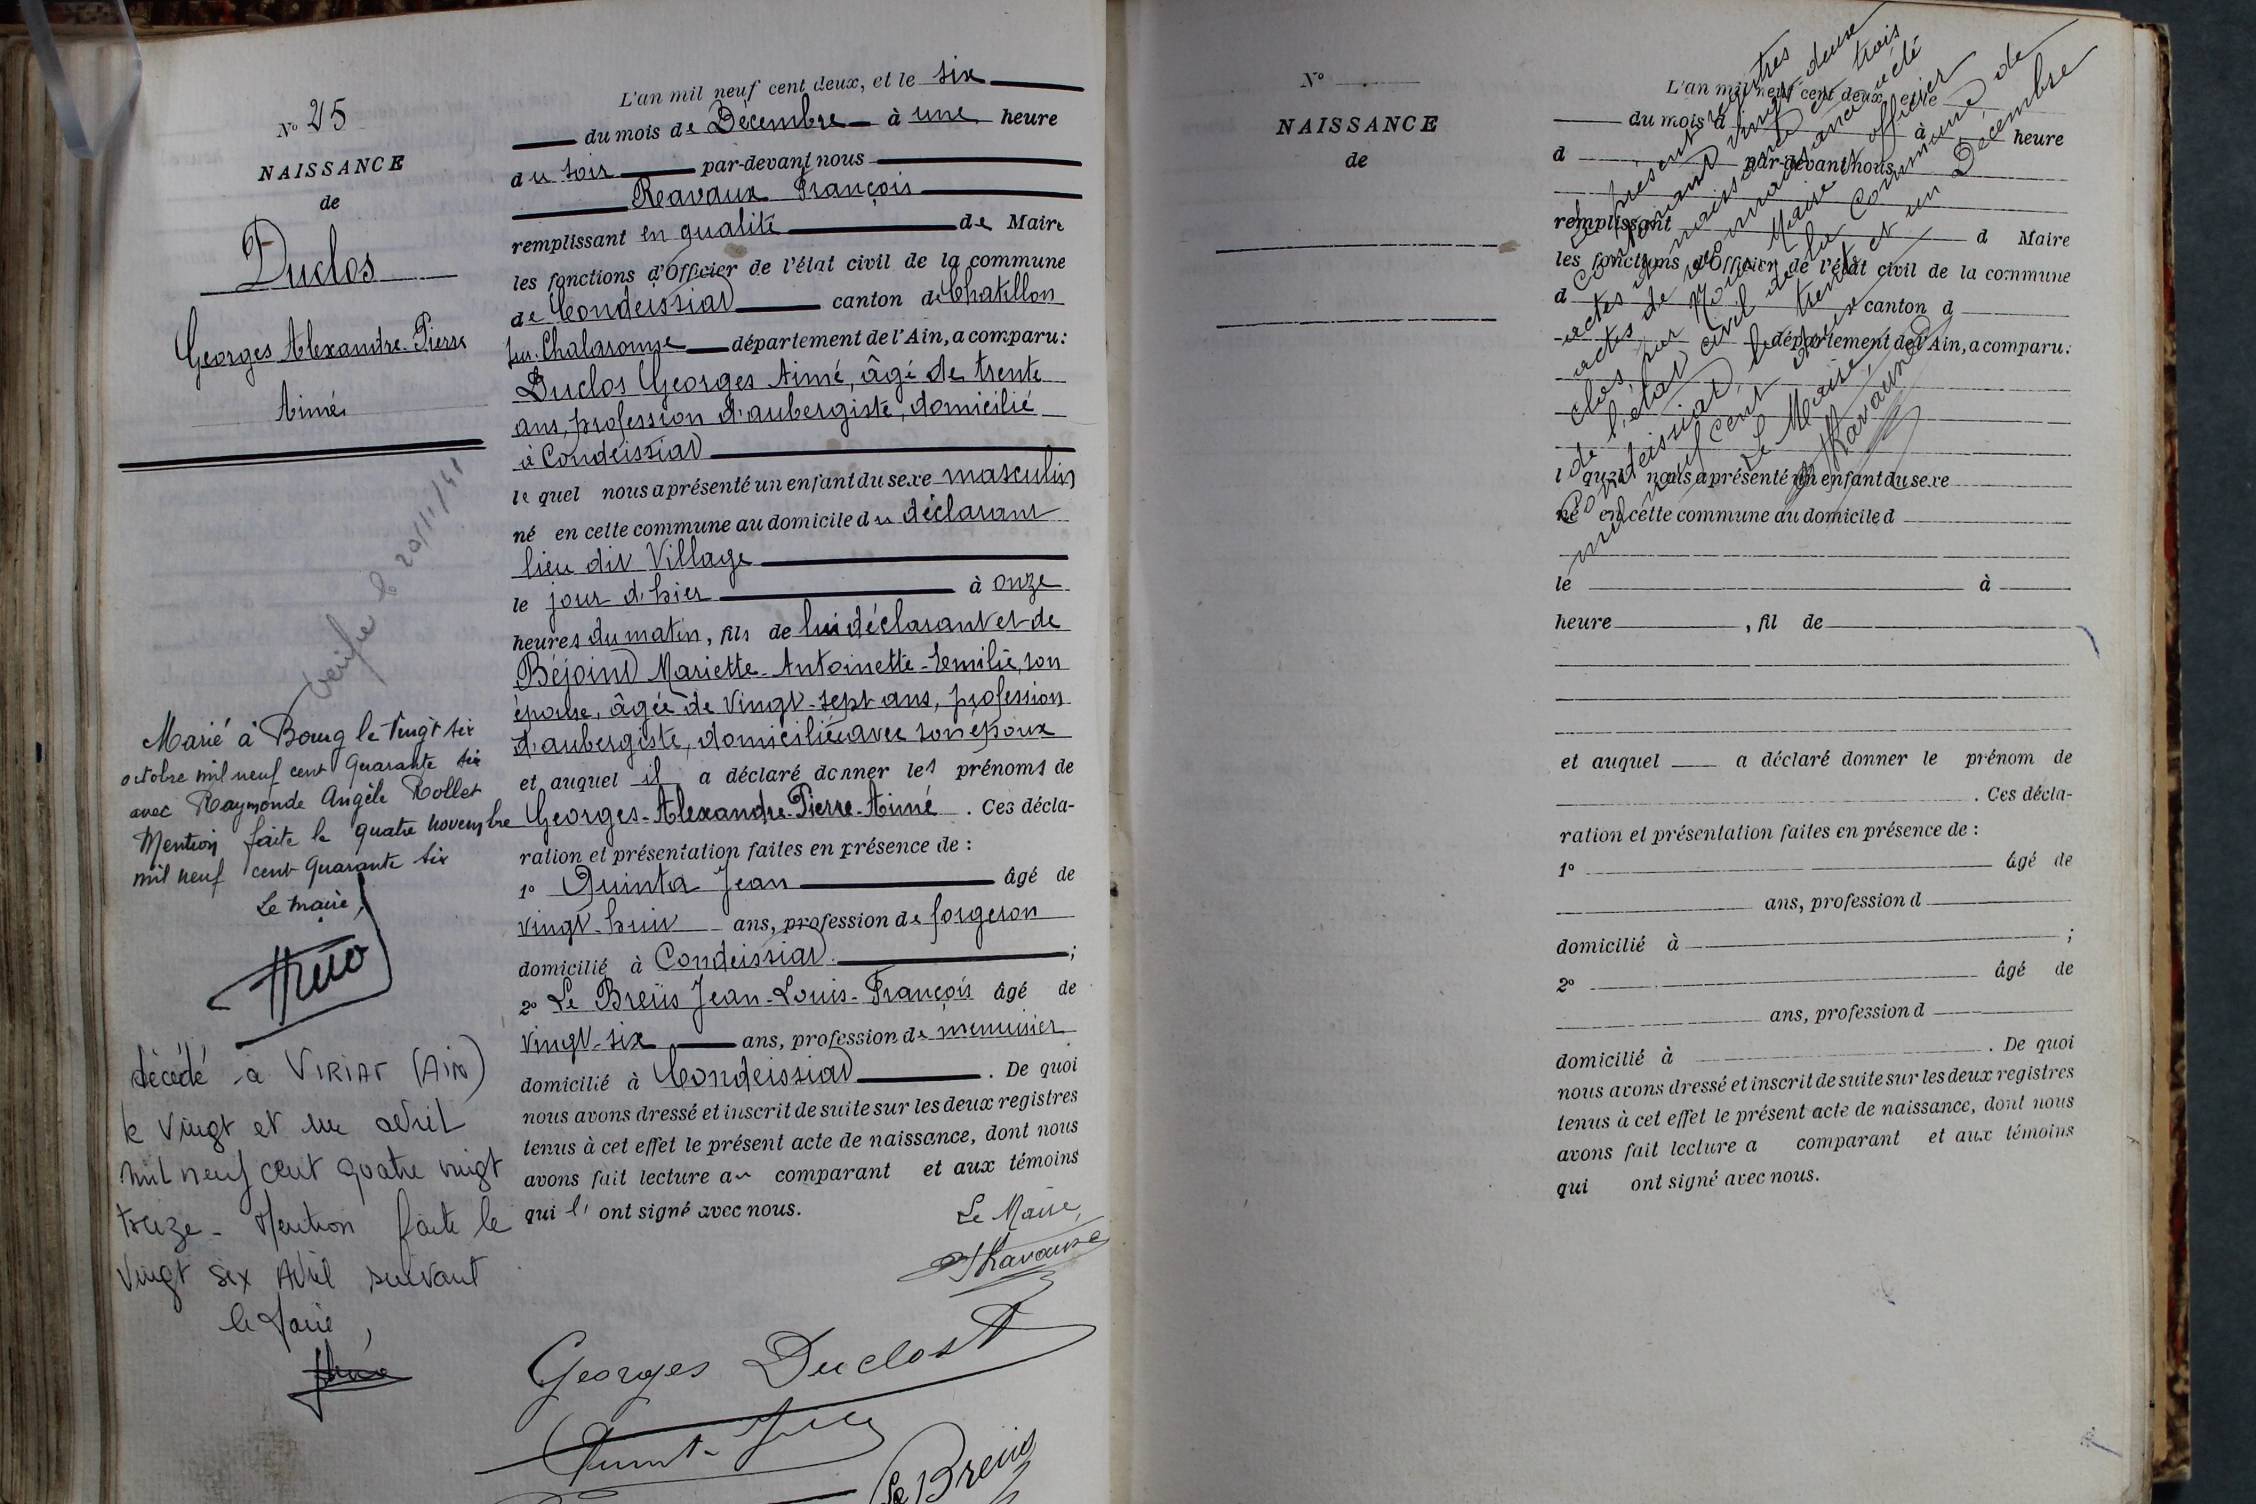 N° 25
NAISSANCE
de
Duclos
Georges Alexandre-Pierre
Aimé
vérifié le 20/11/41
Marié à Bourg le vingt six
octobre mil neuf cent quarante six
avec Raymonde Angèle Rollet
Mention faite le quatre novembre
mil neuf cent quarante six
Le maire,
décédé à VIRIAT (AIN)
le vingt et un avril
mil neuf cent quatre vingt
treize - Mention faite le
vingt six Avril suivant
le Maire,
L'an mil neuf cent deux, et le six
du mois de Décembre à une heure
du soir par-devant nous
Ravaux François
remplissant en qualité de Maire
les fonctions d'Officier de l'état civil de la commune
de Condeissiat canton de Chatillon
sur-Chalaronne département de l'Ain, a comparu:
Duclos Georges Aimé, âgé de trente
ans, profession d'aubergiste, domicilié
à Condeissiat
le quel nous a présenté un enfant du sexe masculin
né en cette commune au domicile du déclarant
lieu dit Village
le jour d'hier à onze
heures du matin, fils de lui déclarant et de
Béjoint Mariette-Antoinette-Emilie, son
épouse, âgée de vingt-sept ans, profession
d'aubergiste, domiciliée avec son époux
et auquel il a déclaré donner les prénoms de
Georges-Alexandre-Pierre-Aimé. Ces décla-
ration et présentation faites en présence de :
1° Quinta Jean âgé de
vingt-huit ans, profession de forgeron
domicilié à Condeissiat ;
2° Le Breüs Jean-Louis-François âgé de
vingt-six ans, profession de menuisier
domicilié à Condeissiat. De quoi
nous avons dressé et inscrit de suite sur les deux registres
tenus à cet effet le présent acte de naissance, dont nous
avons fait lecture au comparant et aux témoins
qui ont signé avec nous.
Le Maire,
F Ravaux
Georges Duclos
Le Breüs
N°
NAISSANCE
de
L'an mil neuf cent deux, et le
du mois d à heure
d par-devant nous
remplissant d Maire
les fonctions d'Officier de l'état civil de la commune
d canton d
département de l'Ain, a comparu:
l quel nous a présenté un enfant du sexe
né en cette commune au domicile d
le à
heure , fil de
et auquel a déclaré donner le prénom de
. Ces décla-
ration et présentation faites en présence de :
1° âgé de
ans, profession d
domicilié à ;
2° âgé de
ans, profession d
domicilié à . De quoi
nous avons dressé et inscrit de suite sur les deux registres
tenus à cet effet le présent acte de naissance, dont nous
avons fait lecture a comparant et aux témoins
qui ont signé avec nous.
présent registres
contenant vingt-deux
actes de naissance et trois
actes de reconnaissance a été
clos, par Nous Maire et officier
de l'état civil de la Commune de
Condeissiat, le trente et un Décembre
mil neuf cent deux
Le Maire,
F Ravaux